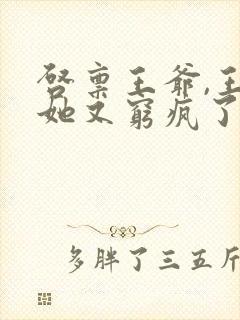 启禀王爷,王
她又窮疯了
多胖了三五斤